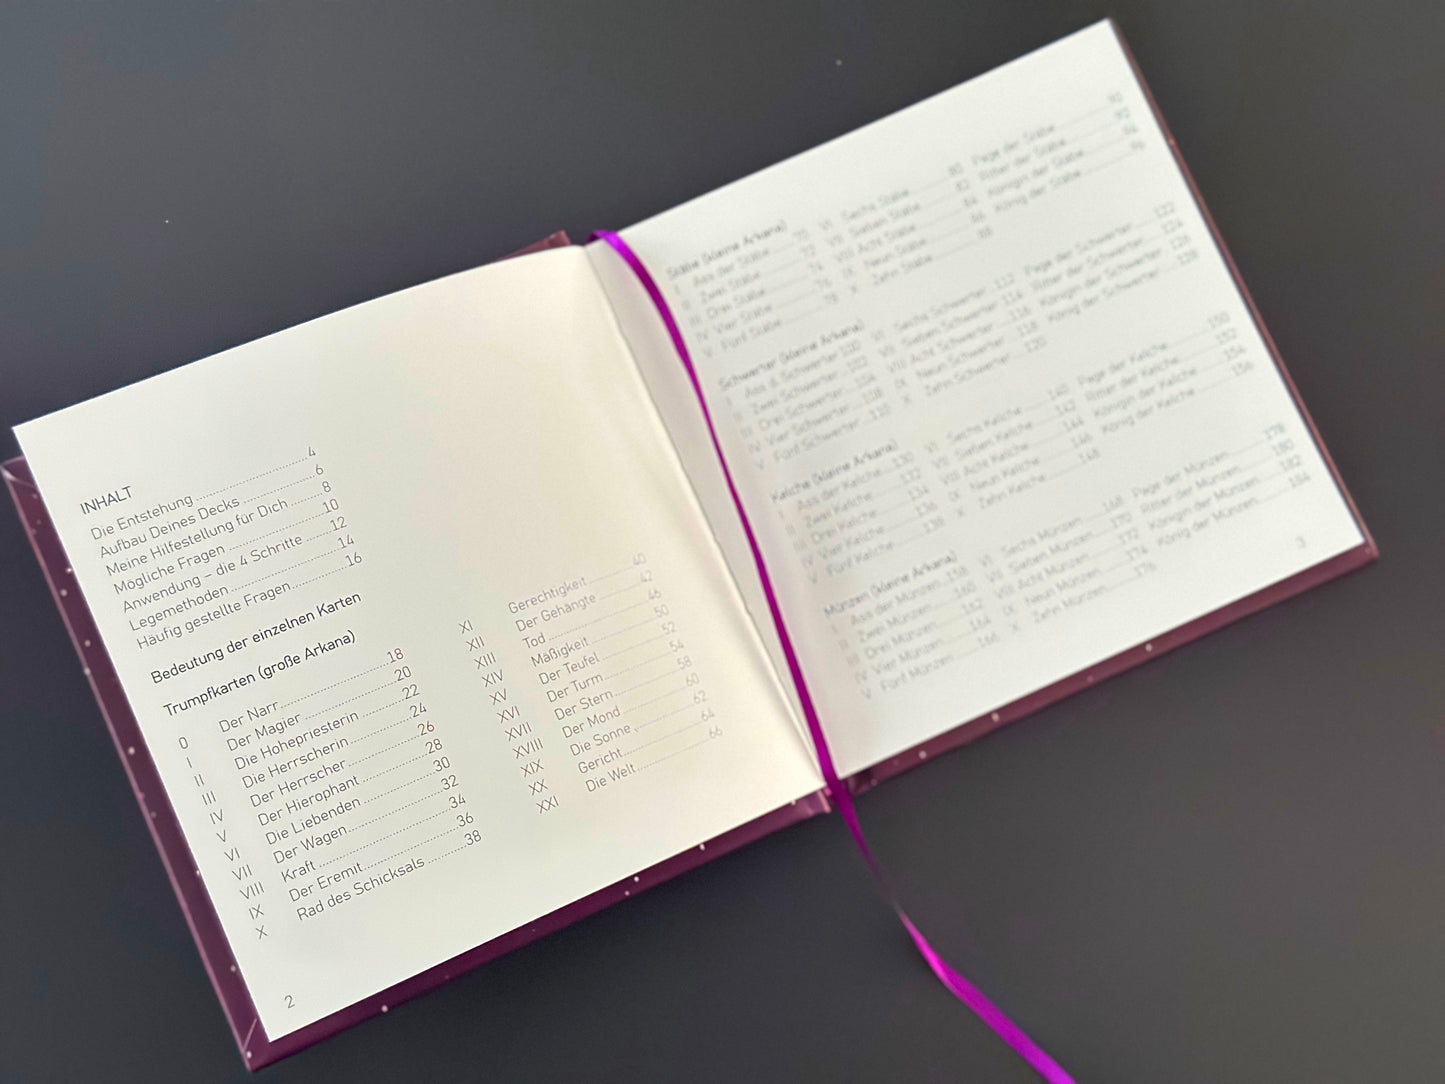 INHALT
Die Entstehung ........ 4
Aufbau Deines Decks ........ 6
Meine Hilfestellung für Dich ........ 8
Mögliche Fragen ........ 10
Anwendung – die 4 Schritte ........ 12
Legemethoden ........ 14
Häufig gestellte Fragen ........ 16
Bedeutung der einzelnen Karten
Trumpfkarten (große Arkana)
0 Der Narr ........ 18
I Der Magier ........ 20
II Die Hohepriesterin ........ 22
III Die Herrscherin ........ 24
IV Der Herrscher ........ 26
V Der Hierophant ........ 28
VI Die Liebenden ........ 30
VII Der Wagen ........ 32
VIII Kraft ........ 34
IX Der Eremit ........ 36
X Rad des Schicksals ........ 38
XI Gerechtigkeit ........ 40
XII Der Gehängte ........ 42
XIII Tod ........ 46
XIV Mäßigkeit ........ 50
XV Der Teufel ........ 52
XVI Der Turm ........ 54
XVII Der Stern ........ 58
XVIII Der Mond ........ 60
XIX Die Sonne ........ 62
XX Gericht ........ 64
XXI Die Welt ........ 66
2
Stäbe (kleine Arkana)
I Ass der Stäbe ........ 70
II Zwei Stäbe ........ 72
III Drei Stäbe ........ 74
IV Vier Stäbe ........ 76
V Fünf Stäbe ........ 78
VI Sechs Stäbe ........ 80
VII Sieben Stäbe ........ 82
VIII Acht Stäbe ........ 84
IX Neun Stäbe ........ 86
X Zehn Stäbe ........ 88
Page der Stäbe ........ 90
Ritter der Stäbe ........ 92
Königin der Stäbe ........ 94
König der Stäbe ........ 96
Schwerter (kleine Arkana)
I Ass d. Schwerter 100
II Zwei Schwerter ... 102
III Drei Schwerter ... 104
IV Vier Schwerter ... 108
V Fünf Schwerter ... 110
VI Sechs Schwerter ... 112
VII Sieben Schwerter ... 114
VIII Acht Schwerter ... 116
IX Neun Schwerter ... 118
X Zehn Schwerter ... 120
Page der Schwerter ... 122
Ritter der Schwerter ... 124
Königin der Schwerter ... 126
König der Schwerter ... 128
Kelche (kleine Arkana)
I Ass der Kelche ... 130
II Zwei Kelche ........ 132
III Drei Kelche ........ 134
IV Vier Kelche ........ 136
V Fünf Kelche ........ 138
VI Sechs Kelche ........ 140
VII Sieben Kelche ........ 142
VIII Acht Kelche ........ 144
IX Neun Kelche ........ 146
X Zehn Kelche ........ 148
Page der Kelche ........ 150
Ritter der Kelche ........ 152
Königin der Kelche ........ 154
König der Kelche ........ 156
Münzen (kleine Arkana)
I Ass der Münzen ... 158
II Zwei Münzen ........ 160
III Drei Münzen ........ 162
IV Vier Münzen ........ 164
V Fünf Münzen ........ 166
VI Sechs Münzen ........ 168
VII Sieben Münzen ........ 170
VIII Acht Münzen ........ 172
IX Neun Münzen ........ 174
X Zehn Münzen ........ 176
Page der Münzen ........ 178
Ritter der Münzen ........ 180
Königin der Münzen ........ 182
König der Münzen ........ 184
3